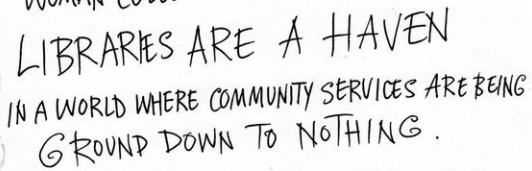 LIBRARIES ARE A HAVEN
IN A WORLD WHERE COMMUNITY SERVICES ARE BEING
GROUND DOWN TO NOTHING.